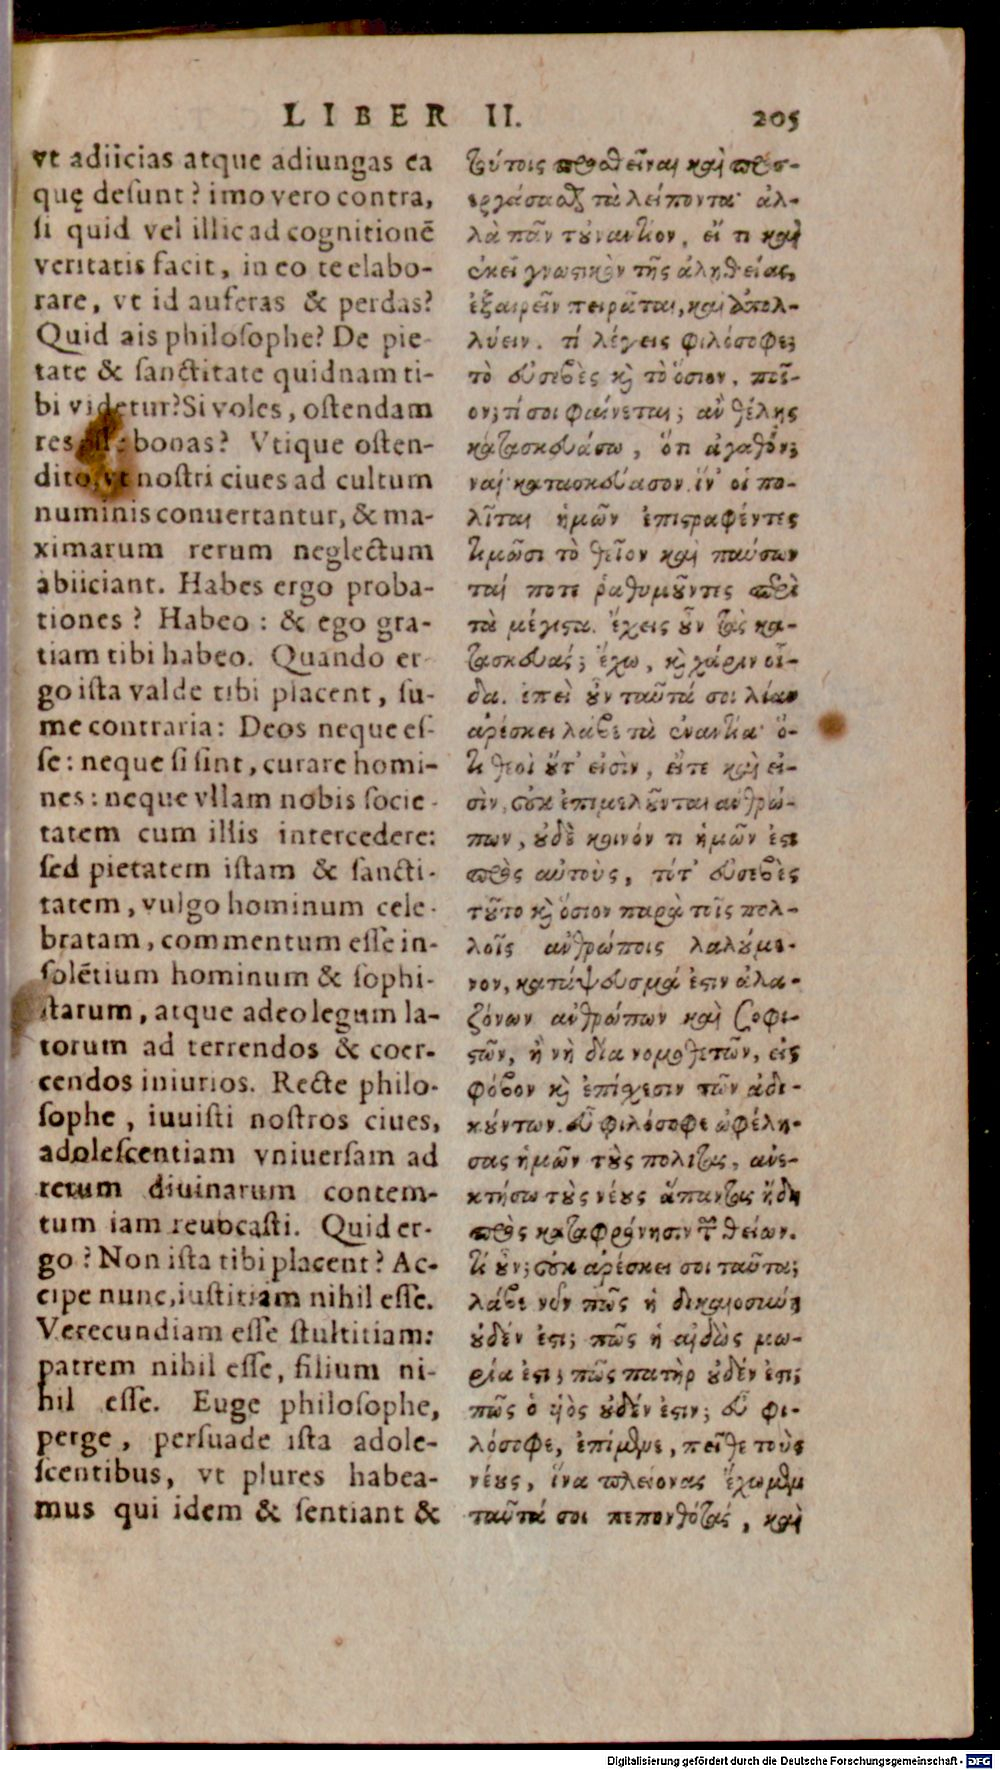 LIBER II. 205
vt adiicias atque adiungas ea
quę desunt? imo vero contra,
si quid vel illic ad cognitionē
veritatis facit, in eo te elabo-
rare, vt id auferas & perdas?
Quid ais philosophe? De pie-
tate & sanctitate quidnam ti-
bi videtur? Si voles, ostendam
res bonas? Vtique osten-
dito, vt nostri ciues ad cultum
numinis conuertantur, & ma-
ximarum rerum neglectum
abiiciant. Habes ergo proba-
tiones? Habeo: & ego gra-
tiam tibi habeo. Quando er-
go ista valde tibi placent, su-
me contraria: Deos neque es-
se: neque si sint, curare homi-
nes: neque vllam nobis socie-
tatem cum illis intercedere:
sed pietatem istam & sancti-
tatem, vulgo hominum cele-
bratam, commentum esse in-
solētium hominum & sophi-
starum, atque adeo legum la-
torum ad terrendos & coer-
cendos iniurios. Recte philo-
sophe, iuuisti nostros ciues,
adolescentiam vniuersam ad
rerum diuinarum contem-
tum iam reuocasti. Quid er-
go? Non ista tibi placent? Ac-
cipe nunc, iustitiam nihil esse.
Verecundiam esse stultitiam:
patrem nihil esse, filium ni-
hil esse. Euge philosophe,
perge, persuade ista adole-
scentibus, vt plures habea-
mus qui idem & sentiant &
τούτοις προσθεῖναι καὶ προσ-
εργάσασθαι τὰ λείποντα· ἀλ-
λὰ πᾶν τοὐναντίον, εἴ τι καὶ
ἐκεῖ γνωστικὸν τῆς ἀληθείας,
ἐξαιρεῖν πειρᾶται, καὶ ἀπολ-
λύειν. τί λέγεις φιλόσοφε;
τὸ εὐσεβὲς καὶ τὸ ὅσιον, ποῖ-
όν; τί σοι φαίνεται; ἂν θέλῃς
κατασκευάσω, ὅτι ἀγαθόν;
ναὶ κατασκεύασον. ἵν' οἱ πο-
λῖται ἡμῶν ἐπιστραφέντες
τιμῶσι τὸ θεῖον καὶ παύσων
ταί ποτε ῥαθυμοῦντες περὶ
τὰ μέγιστα. ἔχεις οὖν τὰς κα-
τασκευάς; ἔχω, καὶ χάριν οἶ-
δα. ἐπεὶ οὖν ταῦτά σοι λίαν
ἀρέσκει λάβε τὰ ἐναντία· ὅ-
τι θεοὶ οὔτ' εἰσὶν, εἴτε καὶ εἰ-
σὶν, οὐκ ἐπιμελοῦνται ἀνθρώ-
πων, οὐδὲ κοινόν τι ἡμῶν ἐστι
πρὸς αὐτοὺς, τότ' εὐσεβὲς
τοῦτο καὶ ὅσιον παρὰ τοῖς πολ-
λοῖς ἀνθρώποις λαλούμε-
νον, κατάψευσμά ἐστιν ἀλα-
ζόνων ἀνθρώπων καὶ σοφι-
στῶν, ἢ νὴ δία νομοθετῶν, εἰς
φόβον καὶ ἐπίσχεσιν τῶν ἀδι-
κούντων. εὖ φιλόσοφε ὠφέλη-
σας ἡμῶν τοὺς πολίτας, ἀνε-
κτήσω τοὺς νέους ἅπαντας ἤδη
πρὸς καταφρόνησιν τῶν θείων.
τί οὖν; οὐκ ἀρέσκει σοι ταῦτα;
λάβε νῦν πῶς ἡ δικαιοσύνη
οὐδέν ἐστι; πῶς ἡ αἰδὼς μω-
ρία ἐστι; πῶς πατὴρ οὐδέν ἐστι;
πῶς ὁ υἱὸς οὐδέν ἐστιν; εὖ φι-
λόσοφε, ἐπίμενε, πεῖθε τοὺς
νέους, ἵνα πλείονας ἔχωμεν
ταῦτά σοι πεπονθότας, καὶ
Digitalisierung gefördert durch die Deutsche Forschungsgemeinschaft - DFG